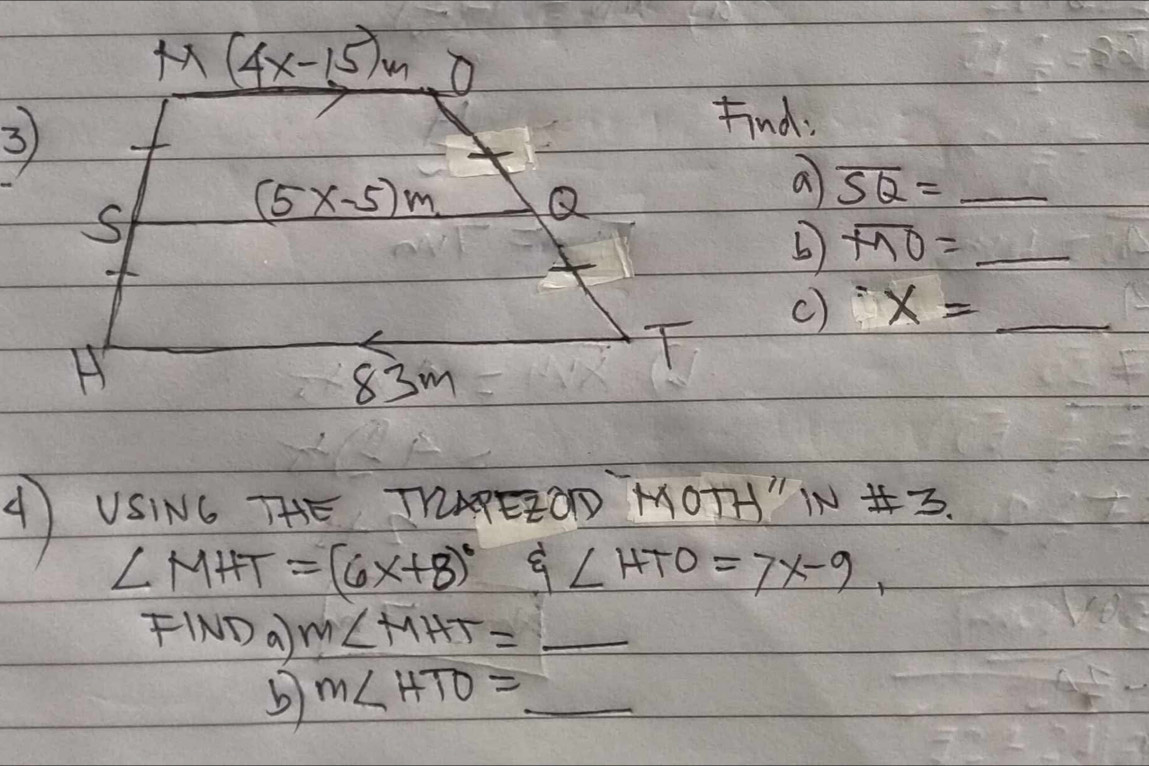 M (4x-15)m O
3)
Find:
(5x-5)m
a) SQ = ___
S
Q
b) MO = ___
c) X = ___
H
T
83m
4) USING THE TRAPEZOID "MOTH" IN #3.
∠MHT = (6x+8)° & ∠HTO = 7x-9,
FIND a) m∠MHT = ___
b) m∠HTO = ___